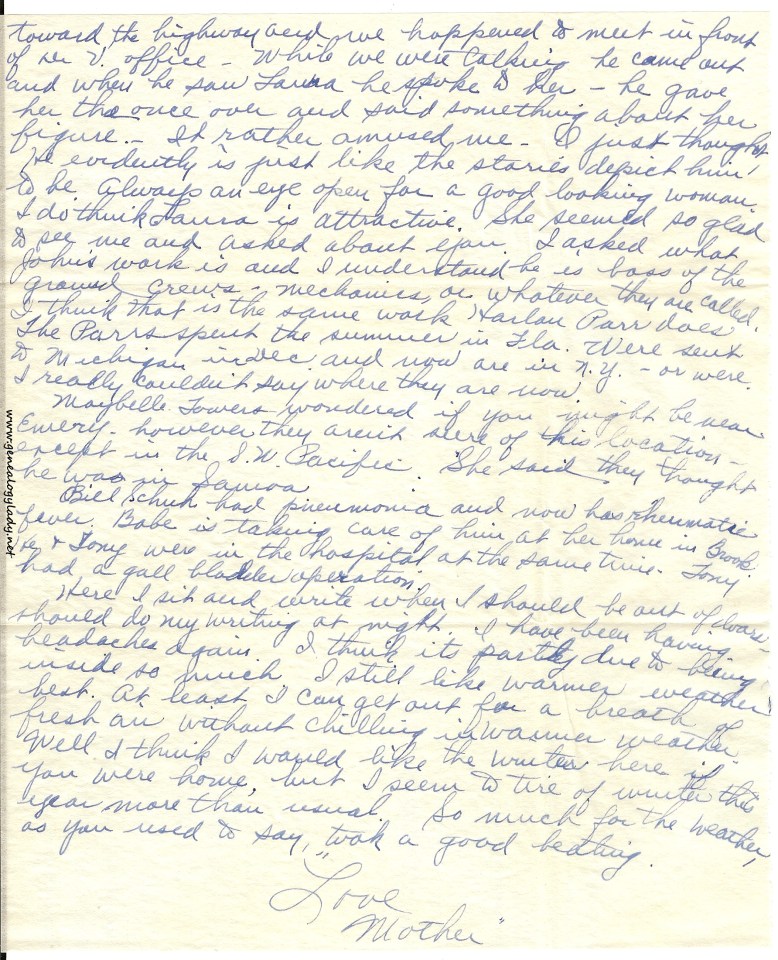 toward the highway and we happened to meet in front
of Dr V. office - While we were talking he came out
and when he saw Laura he spoke to her - he gave
her the once over and said something about her
figure. - It rather amused me - I just thought
He evidently is just like the stories depict him
to be Always an eye open for a good looking woman.
I do think Laura is attractive. She seemed so glad
to see me and asked about you. I asked what
John's work is and I understand he is boss of the
ground crews - mechanics, or whatever they are called.
I think that is the same work Harlan Parr does
The Parrs spent the summer in Fla. Were sent
to Michigan in Dec and now are in N.Y. - or were.
I really couldn't say where they are now.
Maybelle Towers wondered if you might be near
Emery - however they aren't sure of his location -
except in the S.W. Pacific. She said they thought
he was in Samoa
Bill Schuh had pneumonia and now has rheumatic
fever. Babe is taking care of him at her home in Brook.
He & Tony were in the hospital at the same time. Tony
had a gall bladder operation.
Here I sit and write when I should be out of doors -
should do my writing at night. I have been having
headaches again. I think its partly due to being
inside so much. I still like warmer weather
best. At least I can get out for a breath of
fresh air without chilling in warmer weather.
Well I think I would like the winter here if
you were home, but I seem to tire of winter this
year more than usual. So much for the weather,
as you used to say, "took a good beating.
Love
Mother"
www.genealogylady.net